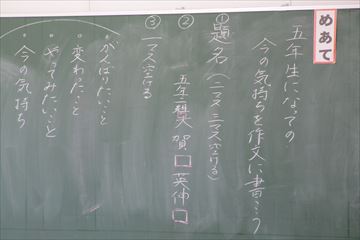 めあて
五年生になっての
今の気持ちを作文に書こう
①題名（二マス三マス空ける）
② 五年二組 賀□英伸□
③一マス空ける
・がんばりたいこと
・変わったこと
・やってみたいこと
・今の気持ち